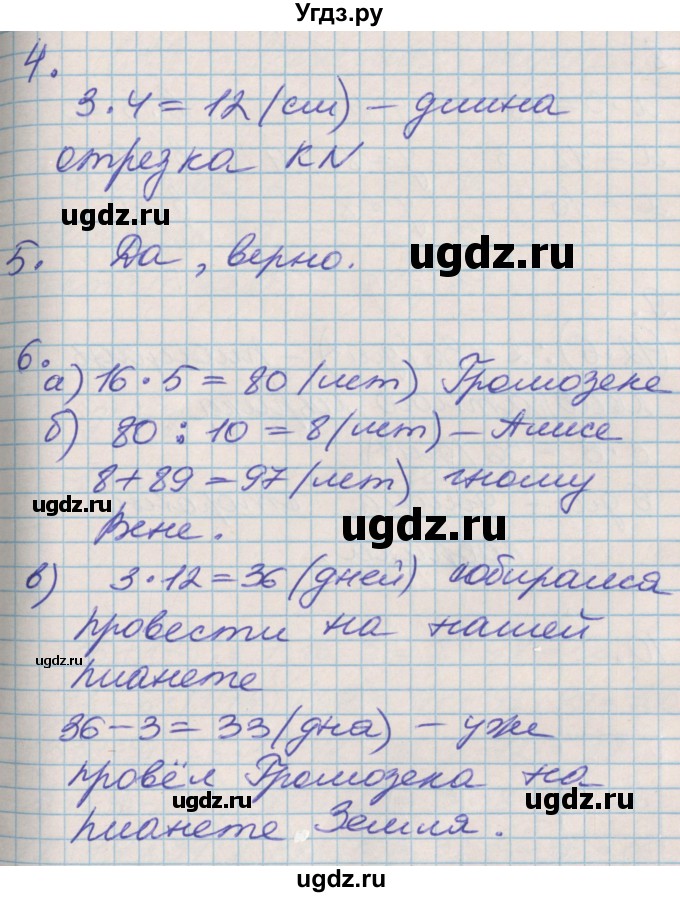 Угдз.ру
4.
3 · 4 = 12 (см) – длина
отрезка KN
ugdz.ru
5. Да, верно.
ugdz.ru
6.
а) 16 · 5 = 80 (лет) Громозеке
б) 80 : 10 = 8 (лет) – Алисе
8 + 89 = 97 (лет) гному
ugdz.ru
Вене.
ugdz.ru
в) 3 · 12 = 36 (дней) собирался
провести на нашей
ugdz.ru
планете
36 – 3 = 33 (дна) – уже
провёл Громозека на
ugdz.ru
ugdz.ru
планете Земля.
ugdz.ru